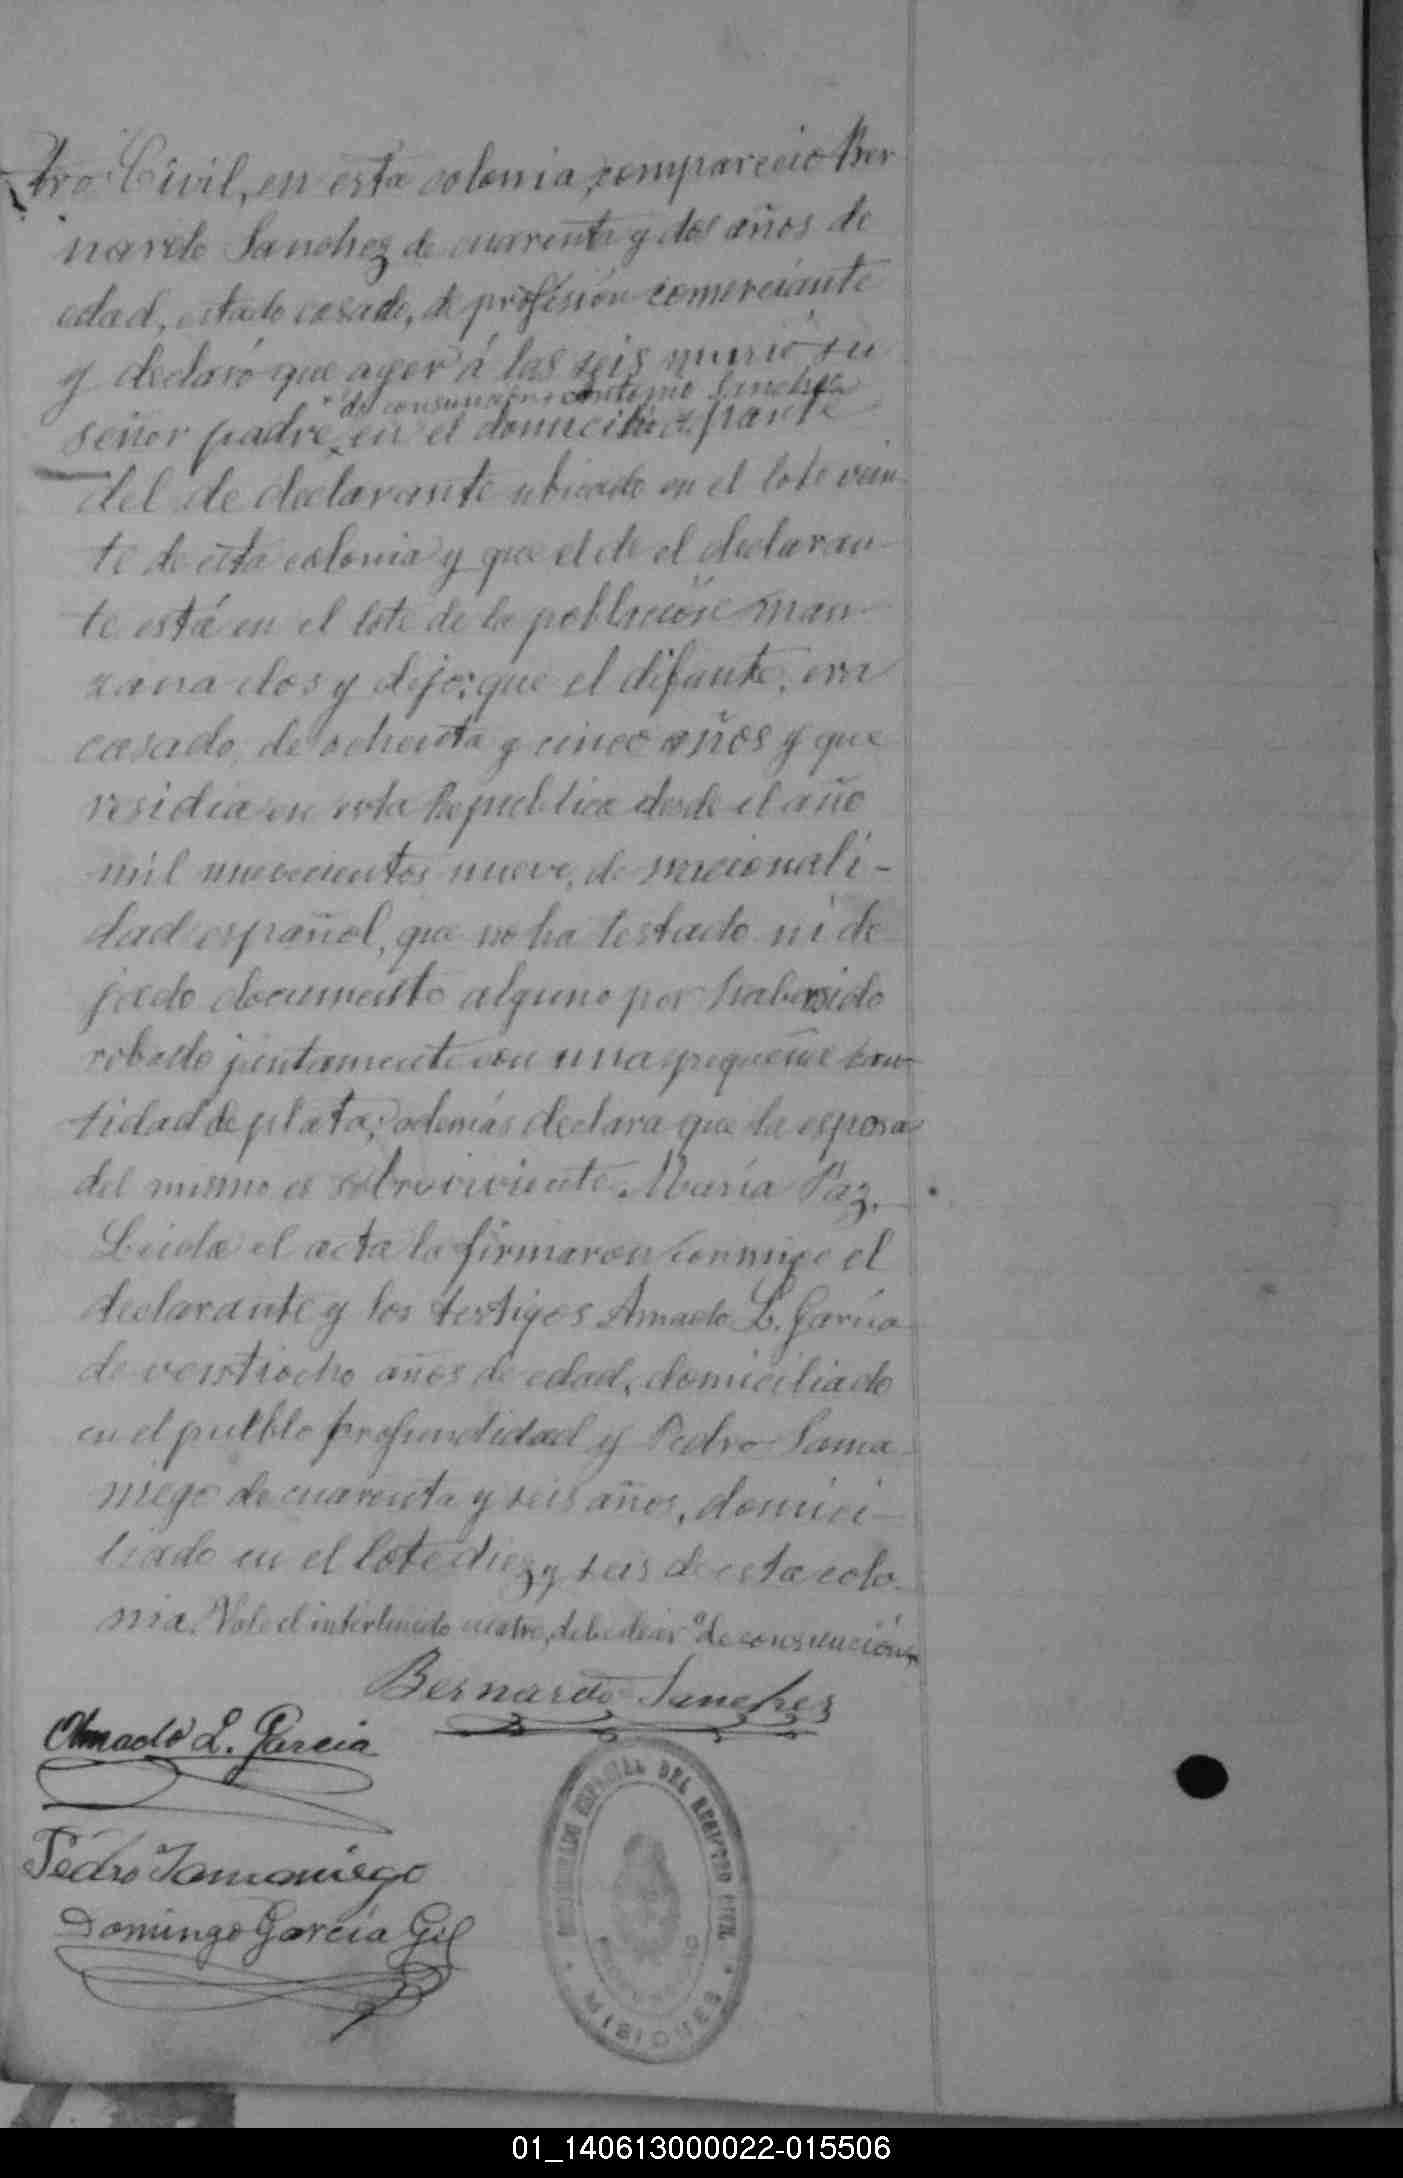 tro Civil, en esta colonia, compareció Ber
nardo Sanchez de cuarenta y dos años de
edad, estado casado, de profesión comerciante
y declaró que ayer á las seis murió su
de consunción Antonio Sanchez
señor padre en el domicilio aparte
del de declarante ubicado en el lote vein
te de esta colonia y que el de el declaran
te está en el lote de la población man
zana dos y dejo; que el difante, era
casado, de ochenta y cinco años y que
residia en esta Republica desde el año
mil nuevecientos nueve, de nacionali-
dad español, que no ha testado ni de
jado documento alguno por haber sido
robado juntamente con una pequeña can
tidad de plata; además declara que la esposa
del mismo es sobreviviente. María Paz.
Leida el acta la firmaron conmigo el
declarante y los testigos Amado L. García
de veintiocho años de edad, domiciliado
en el pueblo profundidad y Pedro Sama
niego de cuarenta y seis años, domici-
liado en el lote diez y seis de esta colo
nia. Vale el interlineado debe decir "de consunción"
Bernardo Sanchez
Amado L. Garcia
Pedro Samaniego
Domingo García Gil
ESPECIAL DEL REGISTRO CIVIL
MISIONES
01_140613000022-015506